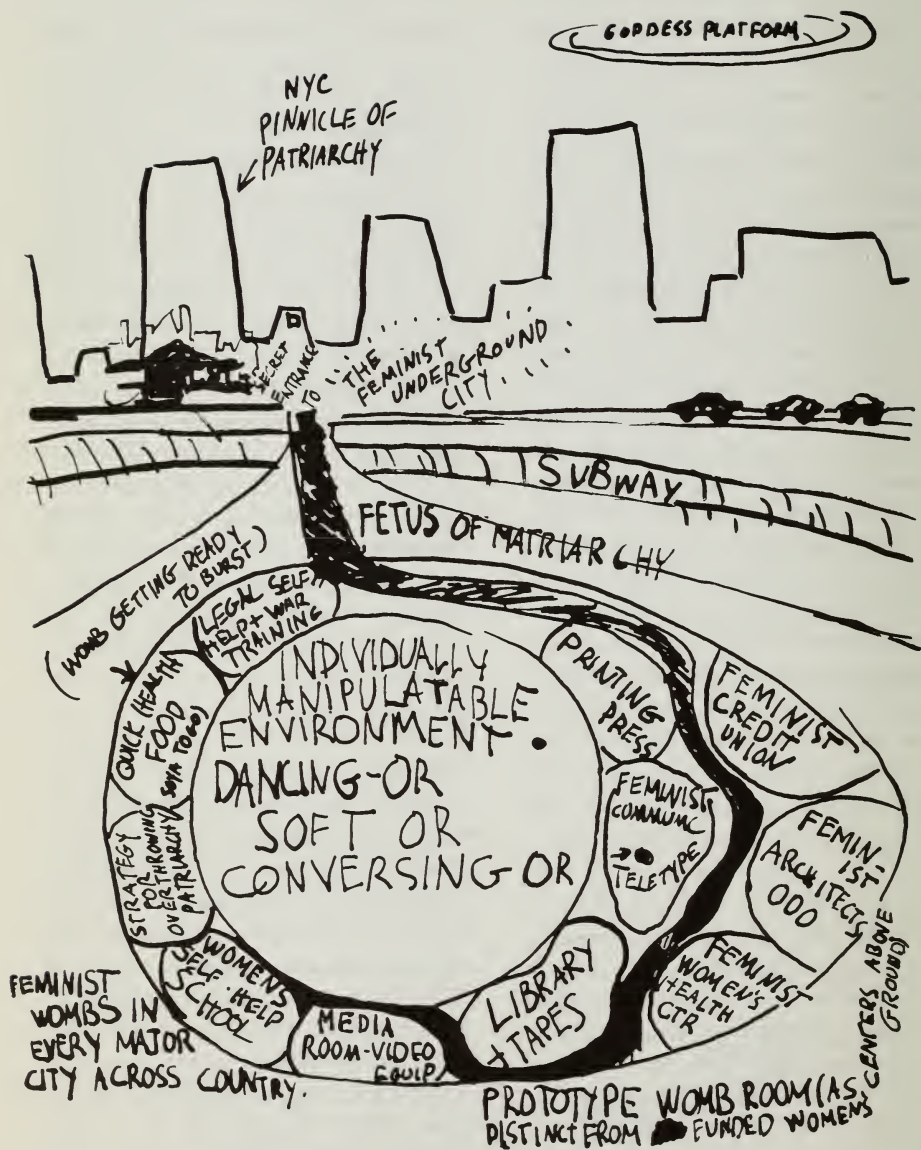 GODDESS PLATFORM
NYC
PINNICLE OF
PATRIARCHY
SECRET
ENTRANCE
TO
THE
FEMINIST
UNDERGROUND
CITY....
SUBWAY
FETUS OF MATRIARCHY
(WOMB GETTING READY
TO BURST)
(LEGAL SELF
HELP + WAR
TRAINING
QUICK (HEALTH
FOOD
SOYA TO GO)
STRATEGY
FOR
OVERTHROWING
PATRIARCHY
WOMENS
SELF-HELP
SCHOOL
MEDIA
ROOM-VIDEO
EQUIP.
LIBRARY
+ TAPES
INDIVIDUALLY
MANIPULATABLE
ENVIRONMENT.
DANCING-OR
SOFT OR
CONVERSING OR
PRINTING
PRESS
FEMINIST
COMMUNC
TELETYPE
FEMINIST
CREDIT
UNION
FEMIN-
IST
ARCHITECTS
OOO
FEMINIST
WOMEN'S
HEALTH
CTR
FEMINIST
WOMBS IN
EVERY MAJOR
CITY ACROSS COUNTRY.
PROTOTYPE WOMB ROOM (AS
DISTINCT FROM FUNDED WOMENS
CENTERS ABOVE
GROUND)